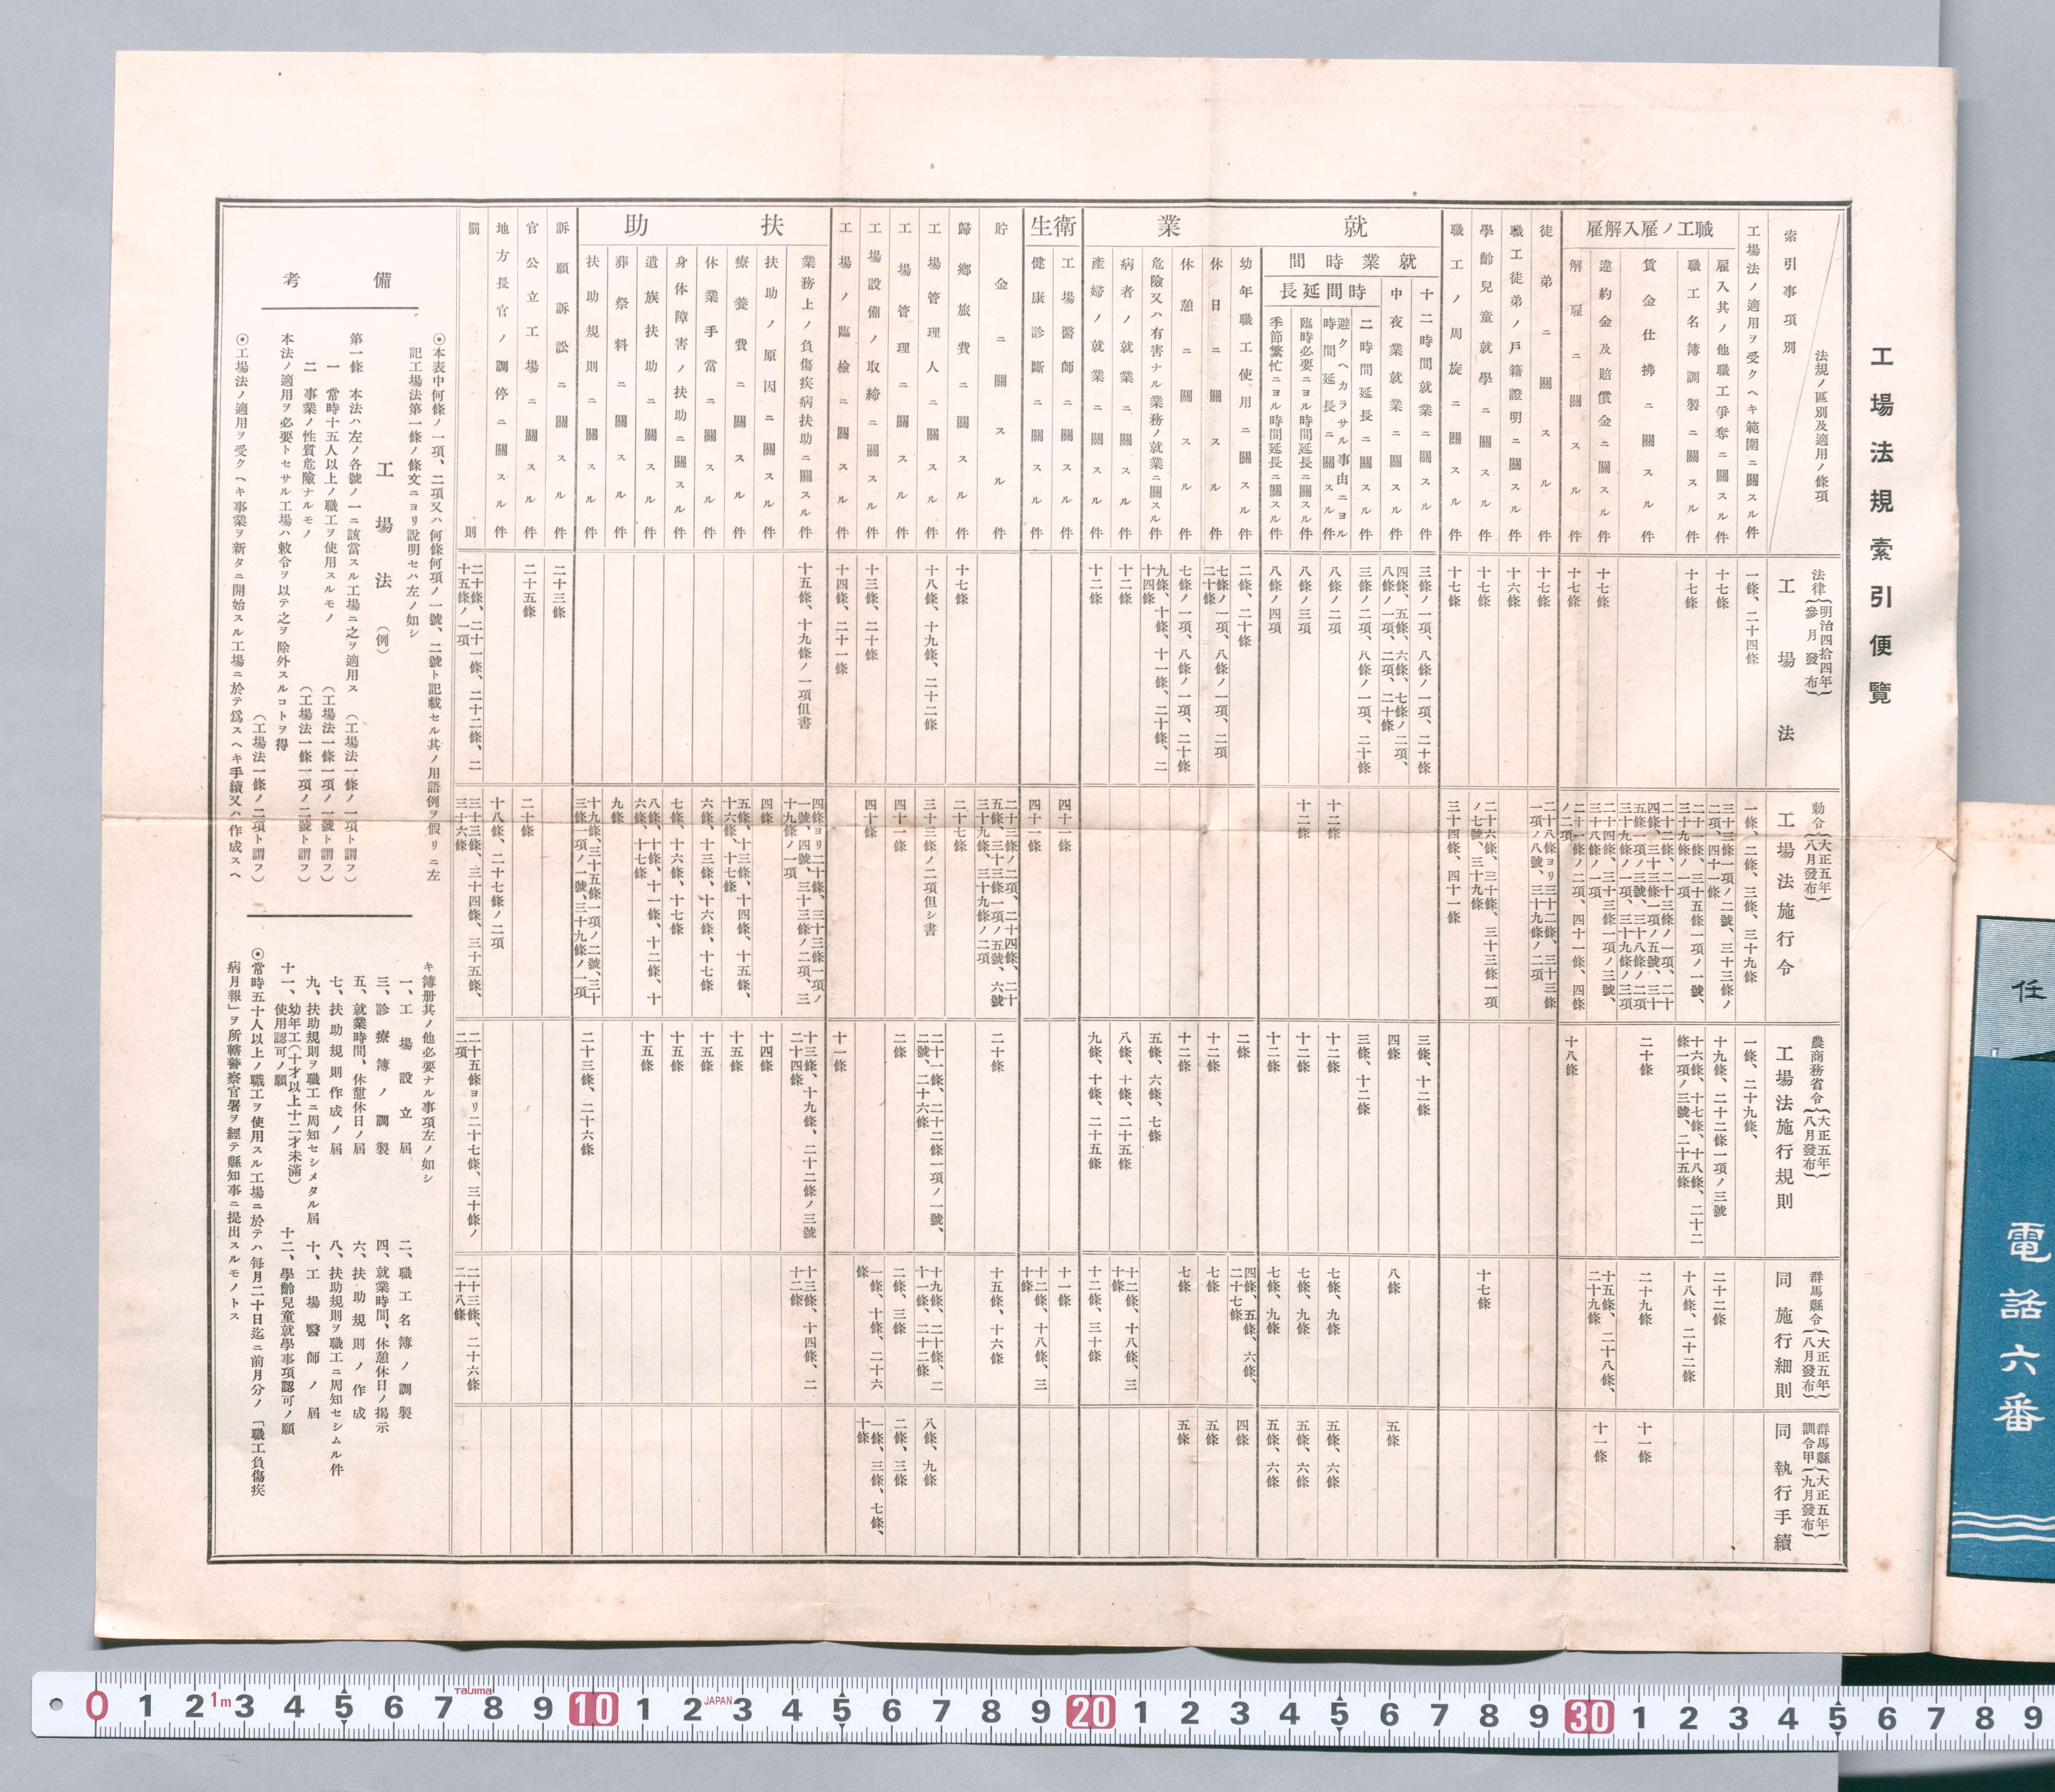 工場法規索引便覽
法規ノ區別及適用ノ條項
索引事項別
法律 明治四拾四年參月發布
工場法
勅令 大正五年八月發布
工場法施行令
農商務省令 大正五年八月發布
工場法施行規則
群馬縣令 大正五年八月發布
同施行細則
群馬縣訓令甲 大正五年九月發布
同執行手續
工場法ノ適用ヲ受クヘキ範圍ニ關スル件
一條、二十四條
一條、二條、三條、三十九條
一條、二十九條、
職工ノ雇入解雇
雇入其ノ他職工爭奪ニ關スル件
十七條
三十三條一項ノ二號、三十三條ノ
二項、四十一條
十九條、二十二條一項ノ三號
二十二條
職工名簿調製ニ關スル件
十七條
二十一條、三十五條一項ノ一號、
三十九條ノ一項
十六條、十七條、十八條、二十二
條一項ノ三號、二十五條
十八條、二十二條
賃金仕拂ニ關スル件
二十二條、二十三條ノ一項、二十
四條、三十三條一項ノ五號、三十
五條一項ノ三號、三十八條ノ二項
三十九條ノ一項
二十條
二十九條
十一條
違約金及賠償金ニ關スル件
十七條
二十四條、三十三條一項ノ三號、
三十八條ノ一項、三十九條ノ三項
十五條、二十八條、
二十九條
十一條
解雇ニ關スル件
十七條
二十一條ノ二項、四十一條、四條
ノ二項
十八條
徒弟ニ關スル件
十七條
二十八條ヨリ三十二條、三十三條
一項ノ八號、三十九條ノ二項
職工徒弟ノ戶籍證明ニ關スル件
十六條
學齡兒童就學ニ關スル件
十七條
二十六條、三十條、三十三條一項
ノ七號、三十九條
十七條
職工ノ周旋ニ關スル件
十七條
三十四條、四十一條
就業
就業時間
十二時間就業ニ關スル件
三條ノ一項、八條ノ一項、二十條
三條、十二條
中夜業就業ニ關スル件
四條、五條、六條、七條ノ二項、
八條ノ一項、二項、二十條
四條
八條
五條
時間延長
二時間延長ニ關スル件
三條ノ二項、八條ノ一項、二十條
三條、十二條
避クヘカラサル事由ニヨル
時間延長ニ關スル件
八條ノ二項
十二條
十二條
七條、九條
五條、六條
臨時必要ニヨル時間延長ニ關スル件
八條ノ三項
十二條
十二條
七條、九條
五條、六條
季節繁忙ニヨル時間延長ニ關スル件
八條ノ四項
十二條
七條、九條
五條、六條
幼年職工使用ニ關スル件
二條、二十條
二條
四條、五條、六條、
二十七條
四條
休日ニ關スル件
七條ノ一項、八條ノ一項、二項
二十條
十二條
七條
五條
休憩ニ關スル件
七條ノ一項、八條ノ一項、二十條
十二條
七條
五條
危險又ハ有害ナル業務ノ就業ニ關スル件
九條、十條、十一條、二十條、二
十四條
五條、六條、七條
病者ノ就業ニ關スル件
十二條
八條、十條、二十五條
十二條、十八條、三
十條
產婦ノ就業ニ關スル件
十二條
九條、十條、二十五條
十二條、三十條
衛生
工場醫師ニ關スル件
四十一條
十一條
健康診斷ニ關スル件
四十一條
十二條、十八條、三
十條
貯金ニ關スル件
二十三條ノ二項、二十四條、二十
五條、三十三條一項ノ五號、六號
三十九條、三十九條ノ二項
二十條
十五條、十六條
歸鄉旅費ニ關スル件
十七條
二十七條
工場管理人ニ關スル件
十八條、十九條、二十二條
三十三條ノ二項但シ書
二十一條、二十二條一項ノ一號、
二號、二十六條
十九條、二十條、二
十一條、二十二條
八條、九條
工場管理ニ關スル件
四十一條
二條
二條、三條
二條、三條
工場設備ノ取締ニ關スル件
十三條、二十條
四十條
一條、十條、二十六
條
一條、三條、七條、
十條
工場ノ臨檢ニ關スル件
十四條、二十一條
十一條
扶助
業務上ノ負傷疾病扶助ニ關スル件
十五條、十九條ノ一項但書
四條ヨリ二十條、三十三條一項ノ
一號、四號、三十三條ノ二項、三
十九條ノ一項
十三條、十九條、二十二條ノ三號
二十四條
十三條、十四條、二
十二條
扶助ノ原因ニ關スル件
四條
十四條
療養費ニ關スル件
五條、十三條、十四條、十五條、
十六條、十七條
十五條
休業手當ニ關スル件
六條、十三條、十六條、十七條
十五條
身体障害ノ扶助ニ關スル件
七條、十六條、十七條
十五條
遺族扶助ニ關スル件
八條、十條、十一條、十二條、十
六條、十七條
十五條
葬祭料ニ關スル件
九條
扶助規則ニ關スル件
十九條、三十五條一項ノ二號、三十
三條一項ノ一號、三十九條ノ一項
二十三條、二十六條
訴願訴訟ニ關スル件
二十三條
官公立工場ニ關スル件
二十五條
二十條
地方長官ノ調停ニ關スル件
十八條、二十七條ノ二項
罰則
二十條、二十一條、二十二條、二
十五條ノ一項
三十三條、三十四條、三十五條、
三十六條
二十五條ヨリ二十七條、三十條ノ
二項
二十三條、二十六條
二十八條
備考
◉本表中何條ノ一項、二項又ハ何條何項ノ一號、二號ト記載セル其ノ用語例ヲ假リニ左
記工場法第一條ノ條文ニヨリ說明セハ左ノ如シ
工場法 (例)
第一條 本法ハ左ノ各號ノ一ニ該當スル工場ニ之ヲ適用ス (工場法一條ノ一項ト謂フ)
一 常時十五人以上ノ職工ヲ使用スルモノ (工場法一條一項ノ一號ト謂フ)
二 事業ノ性質危險ナルモノ (工場法一條一項ノ二號ト謂フ)
本法ノ適用ヲ必要トセサル工場ハ敕令ヲ以テ之ヲ除外スルコトヲ得
(工場法一條ノ二項ト謂フ)
◉工場法ノ適用ヲ受クヘキ事業ヲ新タニ開始スル工場ニ於テ爲スヘキ手續又ハ作成スヘ
キ簿册其ノ他必要ナル事項左ノ如シ
一、工場設立屆 二、職工名簿ノ調製
三、診療簿ノ調製 四、就業時間、休憩休日ノ揭示
五、就業時間、休憩休日ノ屆 六、扶助規則ノ作成
七、扶助規則作成ノ屆 八、扶助規則ヲ職工ニ周知セシムル件
九、扶助規則ヲ職工ニ周知セシメタル屆 十、工場醫師ノ屆
十一、幼年工(十才以上十二才未滿)使用認可ノ願 十二、學齡兒童就學事項認可ノ願
◉常時五十人以上ノ職工ヲ使用スル工場ニ於テハ每月二十日迄ニ前月分ノ「職工負傷疾
病月報」ヲ所轄警察官署ヲ經テ縣知事ニ提出スルモノトス
任
電話六番
0 1 2 1m 3 4 5 6 7 Tajima 8 9 10 1 2 JAPAN 3 4 5 6 7 8 9 20 1 2 3 4 5 6 7 8 9 30 1 2 3 4 5 6 7 8 9